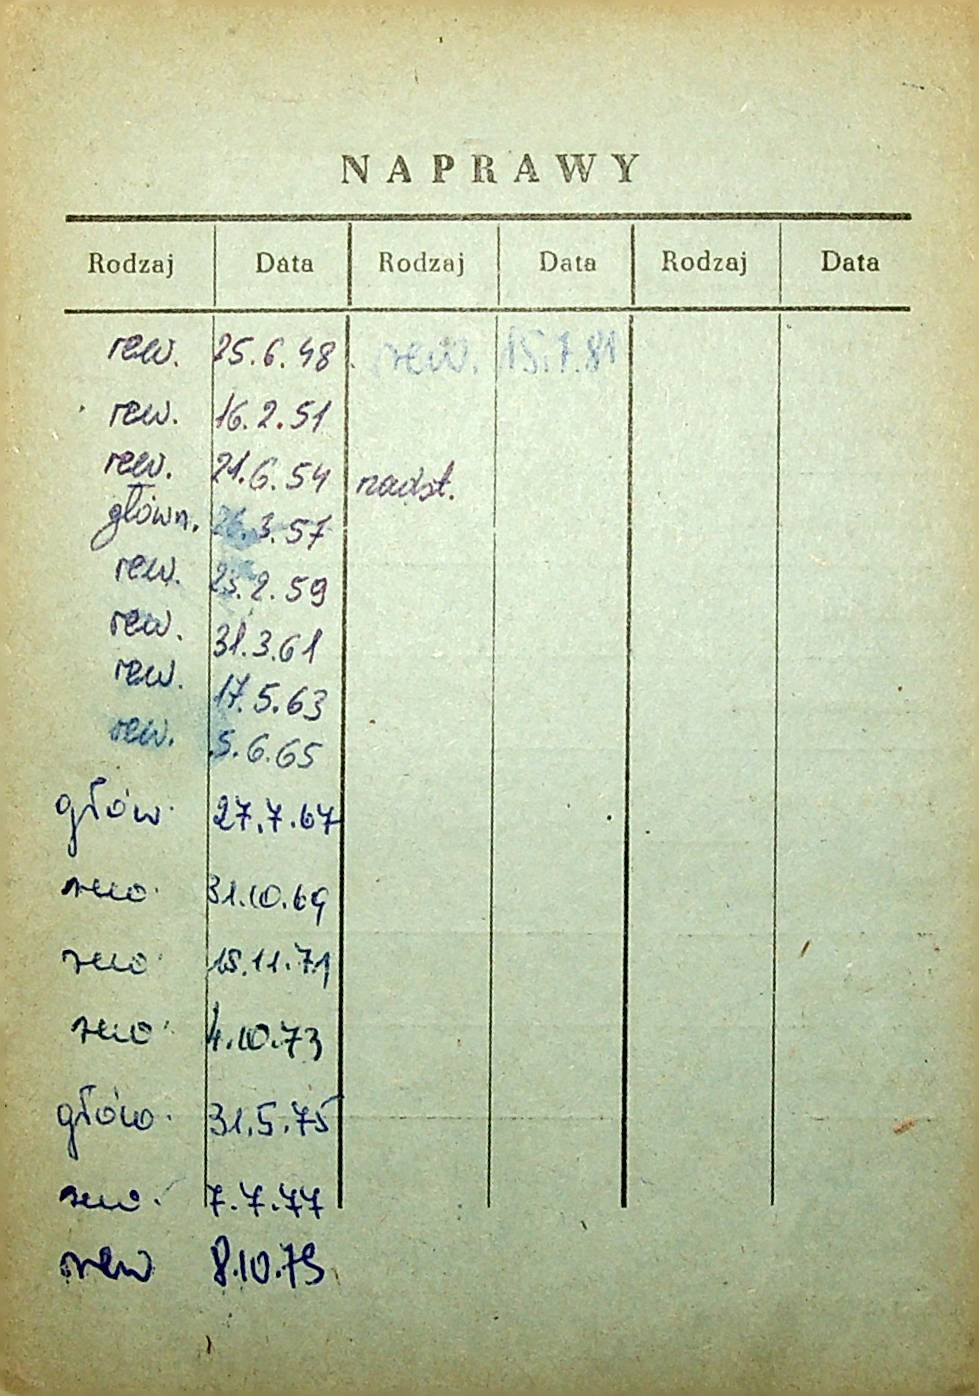 NAPRAWY
Rodzaj Data Rodzaj Data Rodzaj Data
rew. 25.6.48 rew. 15.7.81
rew. 16.2.51
rew. 21.6.54 nadst.
główn. 26.3.57
rew. 23.2.59
rew. 31.3.61
rew. 17.5.63
rew. 5.6.65
głów. 27.7.67
rew. 31.10.69
rew. 15.11.71
rew. 4.10.73
głów. 31.5.75
rew. 7.7.77
rew 8.10.79